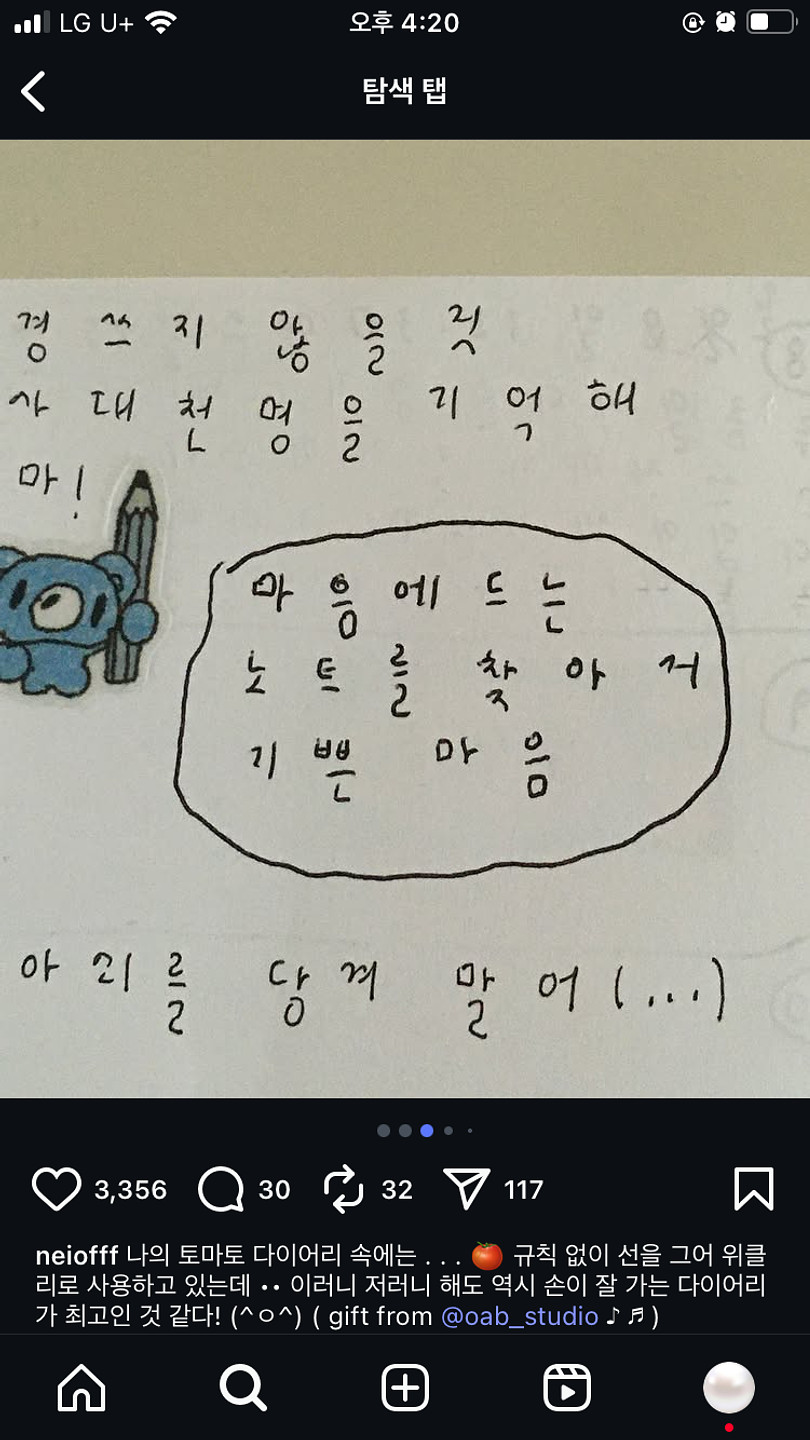 LG U+ 오후 4:20
탐색 탭
경 쓰지 않을 것
사대천명을 기억해
마!
마음에 드는
노트를 찾아서
기쁜 마음
아 쇠를 당겨 말어 (...)
3,356 30 32 117
neiofff 나의 토마토 다이어리 속에는 . . . 🍅 규칙 없이 선을 그어 위클
리로 사용하고 있는데 •• 이러니 저러니 해도 역시 손이 잘 가는 다이어리
가 최고인 것 같다! (^ㅇ^) ( gift from @oab_studio ♪ ♬ )